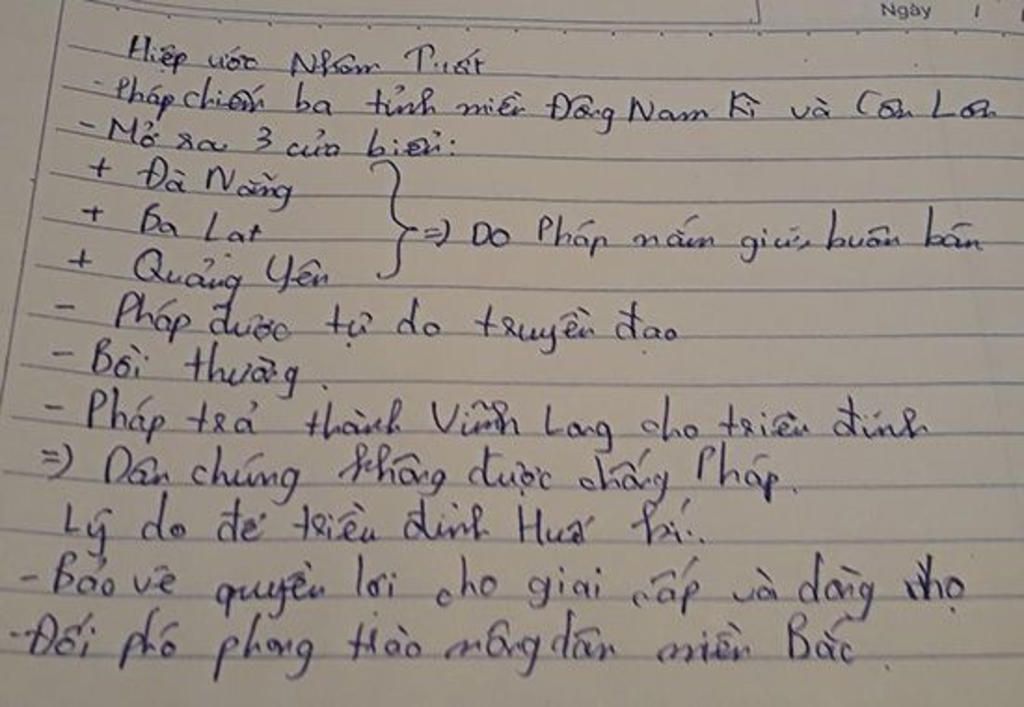 Ngày / /
Hiệp ước Nhâm Tuất
- Pháp chiếm ba tỉnh miền Đông Nam Kì và Côn Lôn
- Mở ra 3 cửa biển:
+ Đà Nẵng
+ Ba Lat } => Do Pháp nắm giữ, buôn bán
+ Quảng Yên
- Pháp được tự do truyền đạo
- Bồi thường.
- Pháp trả thành Vĩnh Long cho triều đình
=> Dân chúng không được chống Pháp.
Lý do để triều đình Huế kí:
- Bảo vệ quyền lợi cho giai cấp và dòng họ
- Đối phó phong trào nông dân miền Bắc.